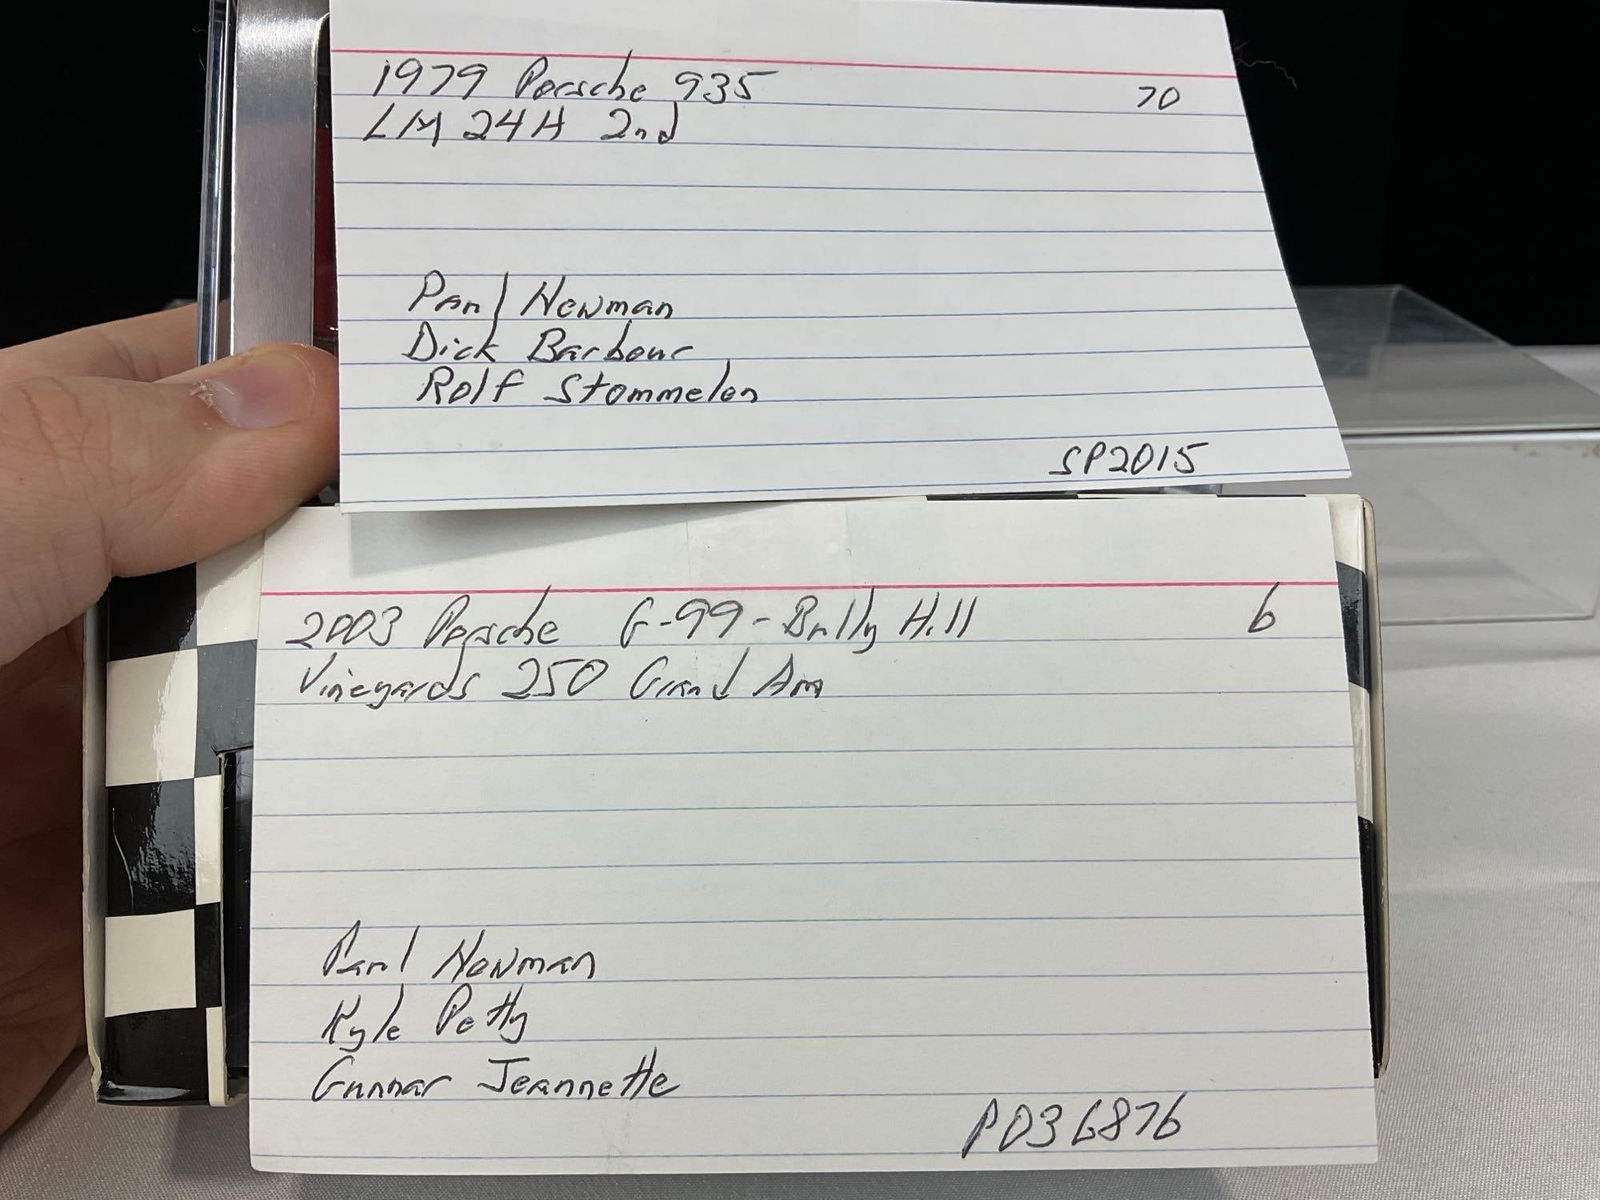 1979 Porsche 935 70
LM 24H 2nd
Paul Newman
Dick Barbour
Rolf Stommelen
SP2015
2003 Porsche G-99-Bully Hill 6
Vineyards 250 Grand Am
Paul Newman
Kyle Petty
Gunnar Jeannette
P036876